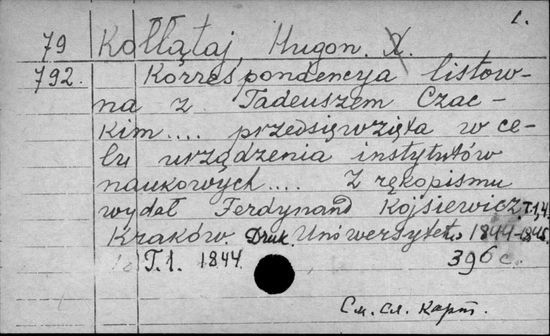 1.
79 Kołłątaj, Hugon. X.
792. Korrespondencyja listow-
na z Tadeuszem Czac-
kim.... przedsięwzięta w ce-
lu urządzenia instytutów
naukowych.... Z rękopismu
wydał Ferdynand Kojsiewicz. T. 1,4.
Kraków. Druk. Uniwersytet. 1844-1845.
T. 1. 1844. 396 c.
См. сл. карт.